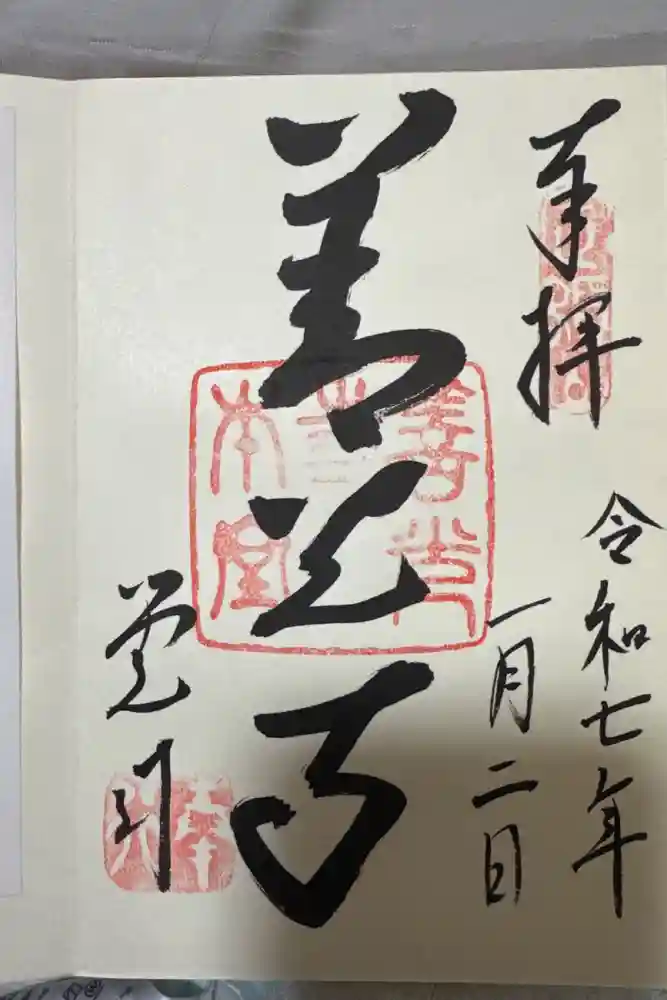 奉拝
令和七年
一月二日
善光寺
善光
本堂